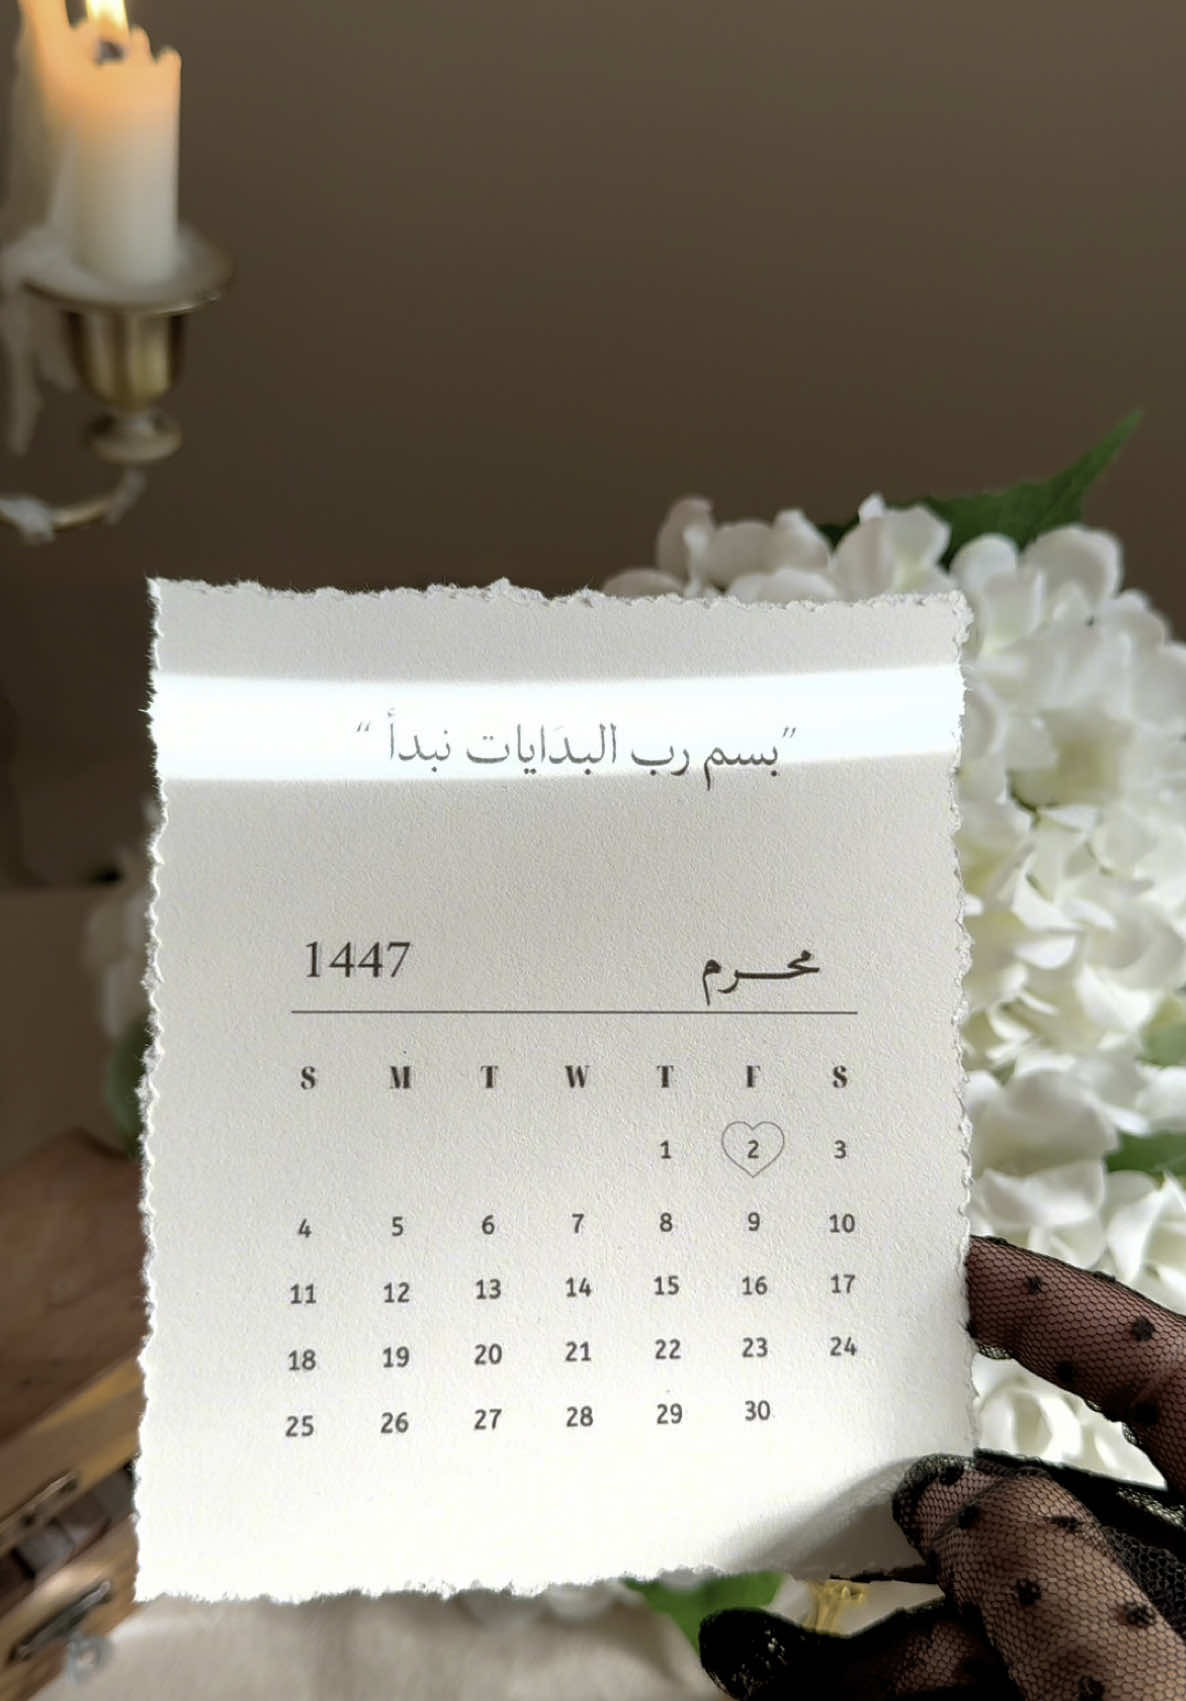 ”بسم رب البدَايات نبدأ “
1447 محـــرم
S M T W T F S
1 2 3
4 5 6 7 8 9 10
11 12 13 14 15 16 17
18 19 20 21 22 23 24
25 26 27 28 29 30